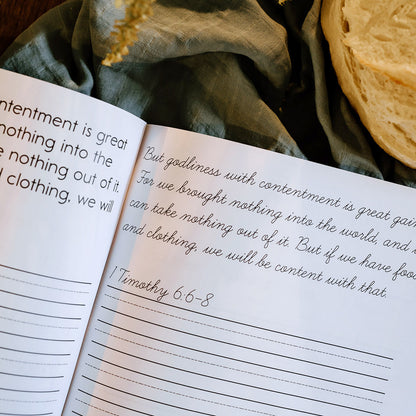 ntentment is great
nothing into the
e nothing out of it.
l clothing, we will
But godliness with contentment is great gain.
For we brought nothing into the world, and
can take nothing out of it. But if we have food
and clothing, we will be content with that.
1 Timothy 6:6-8